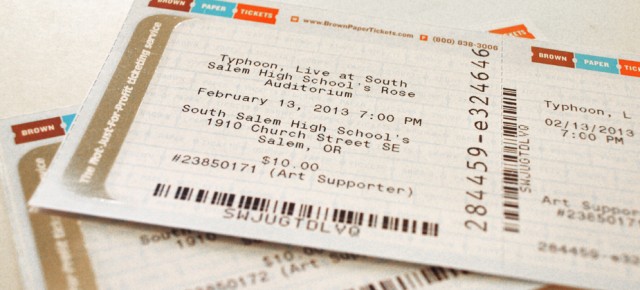 BROWN PAPER TICKETS
www.BrownPaperTickets.com
(800) 838-3006
The Not-Just-For-Profit ticketing service
Typhoon, Live at South
Salem High School's Rose
Auditorium
February 13, 2013 7:00 PM
South Salem High School's
1910 Church Street SE
Salem, OR
$10.00
#23850171 (Art Supporter)
SWJUGTDLVQ
284459-e324646
SWJUGTDLVQ
BROWN PAPER
Typhoon, L
02/13/2013
7:00 PM
Art Suppor
#2385017
284459-e3
BROWN
The Not
South
1910
$10.00
#23850172 (Art